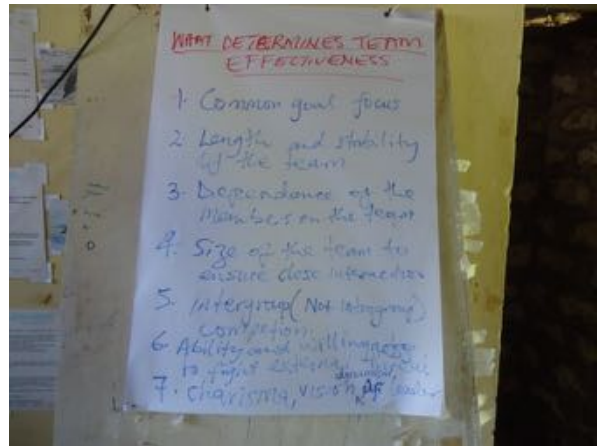 WHAT DETERMINES TEAM
EFFECTIVENESS
1. Common goal focus
2. Length and stability
of the team
3. Dependance of the
Members on the team
4. Size of the team to
ensure close interaction
5. Intergroup (Not intragroup)
6. Ability and willingness
to fight external
7. Charisma, vision of leader